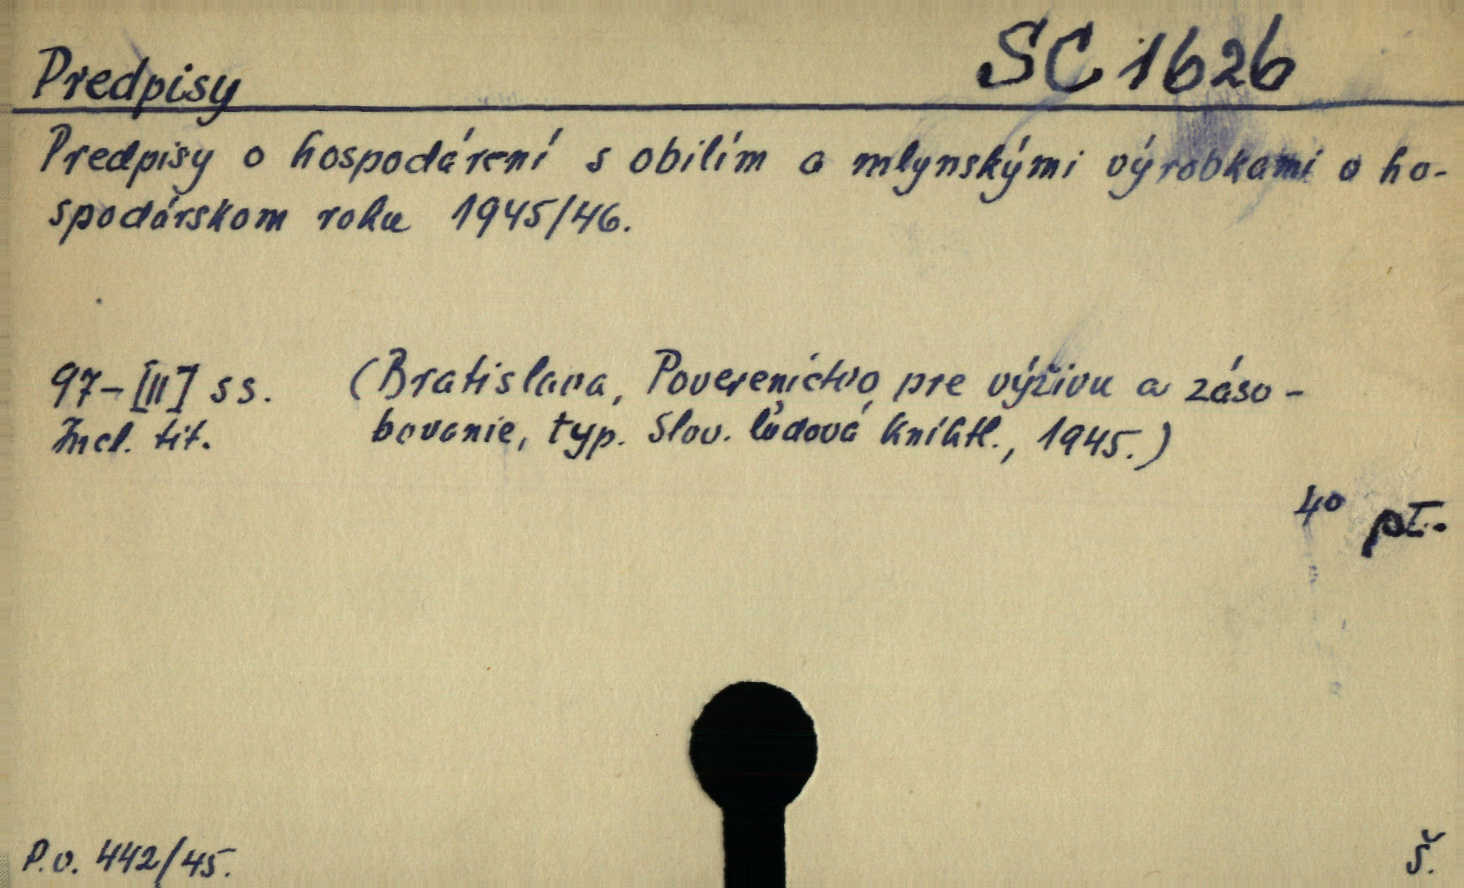 SC 1626
Predpisy
Predpisy o hospodárení s obilím a mlynskými výrobkami o ho-
spodárskom roku 1945/46.
97-[II] ss. (Bratislava, Povereníctvo pre výživu a záso-
Incl. tit. bovanie, typ. Slov. ľudová kníhtl., 1945.)
4° pI.
P.v. 442/45. Š.